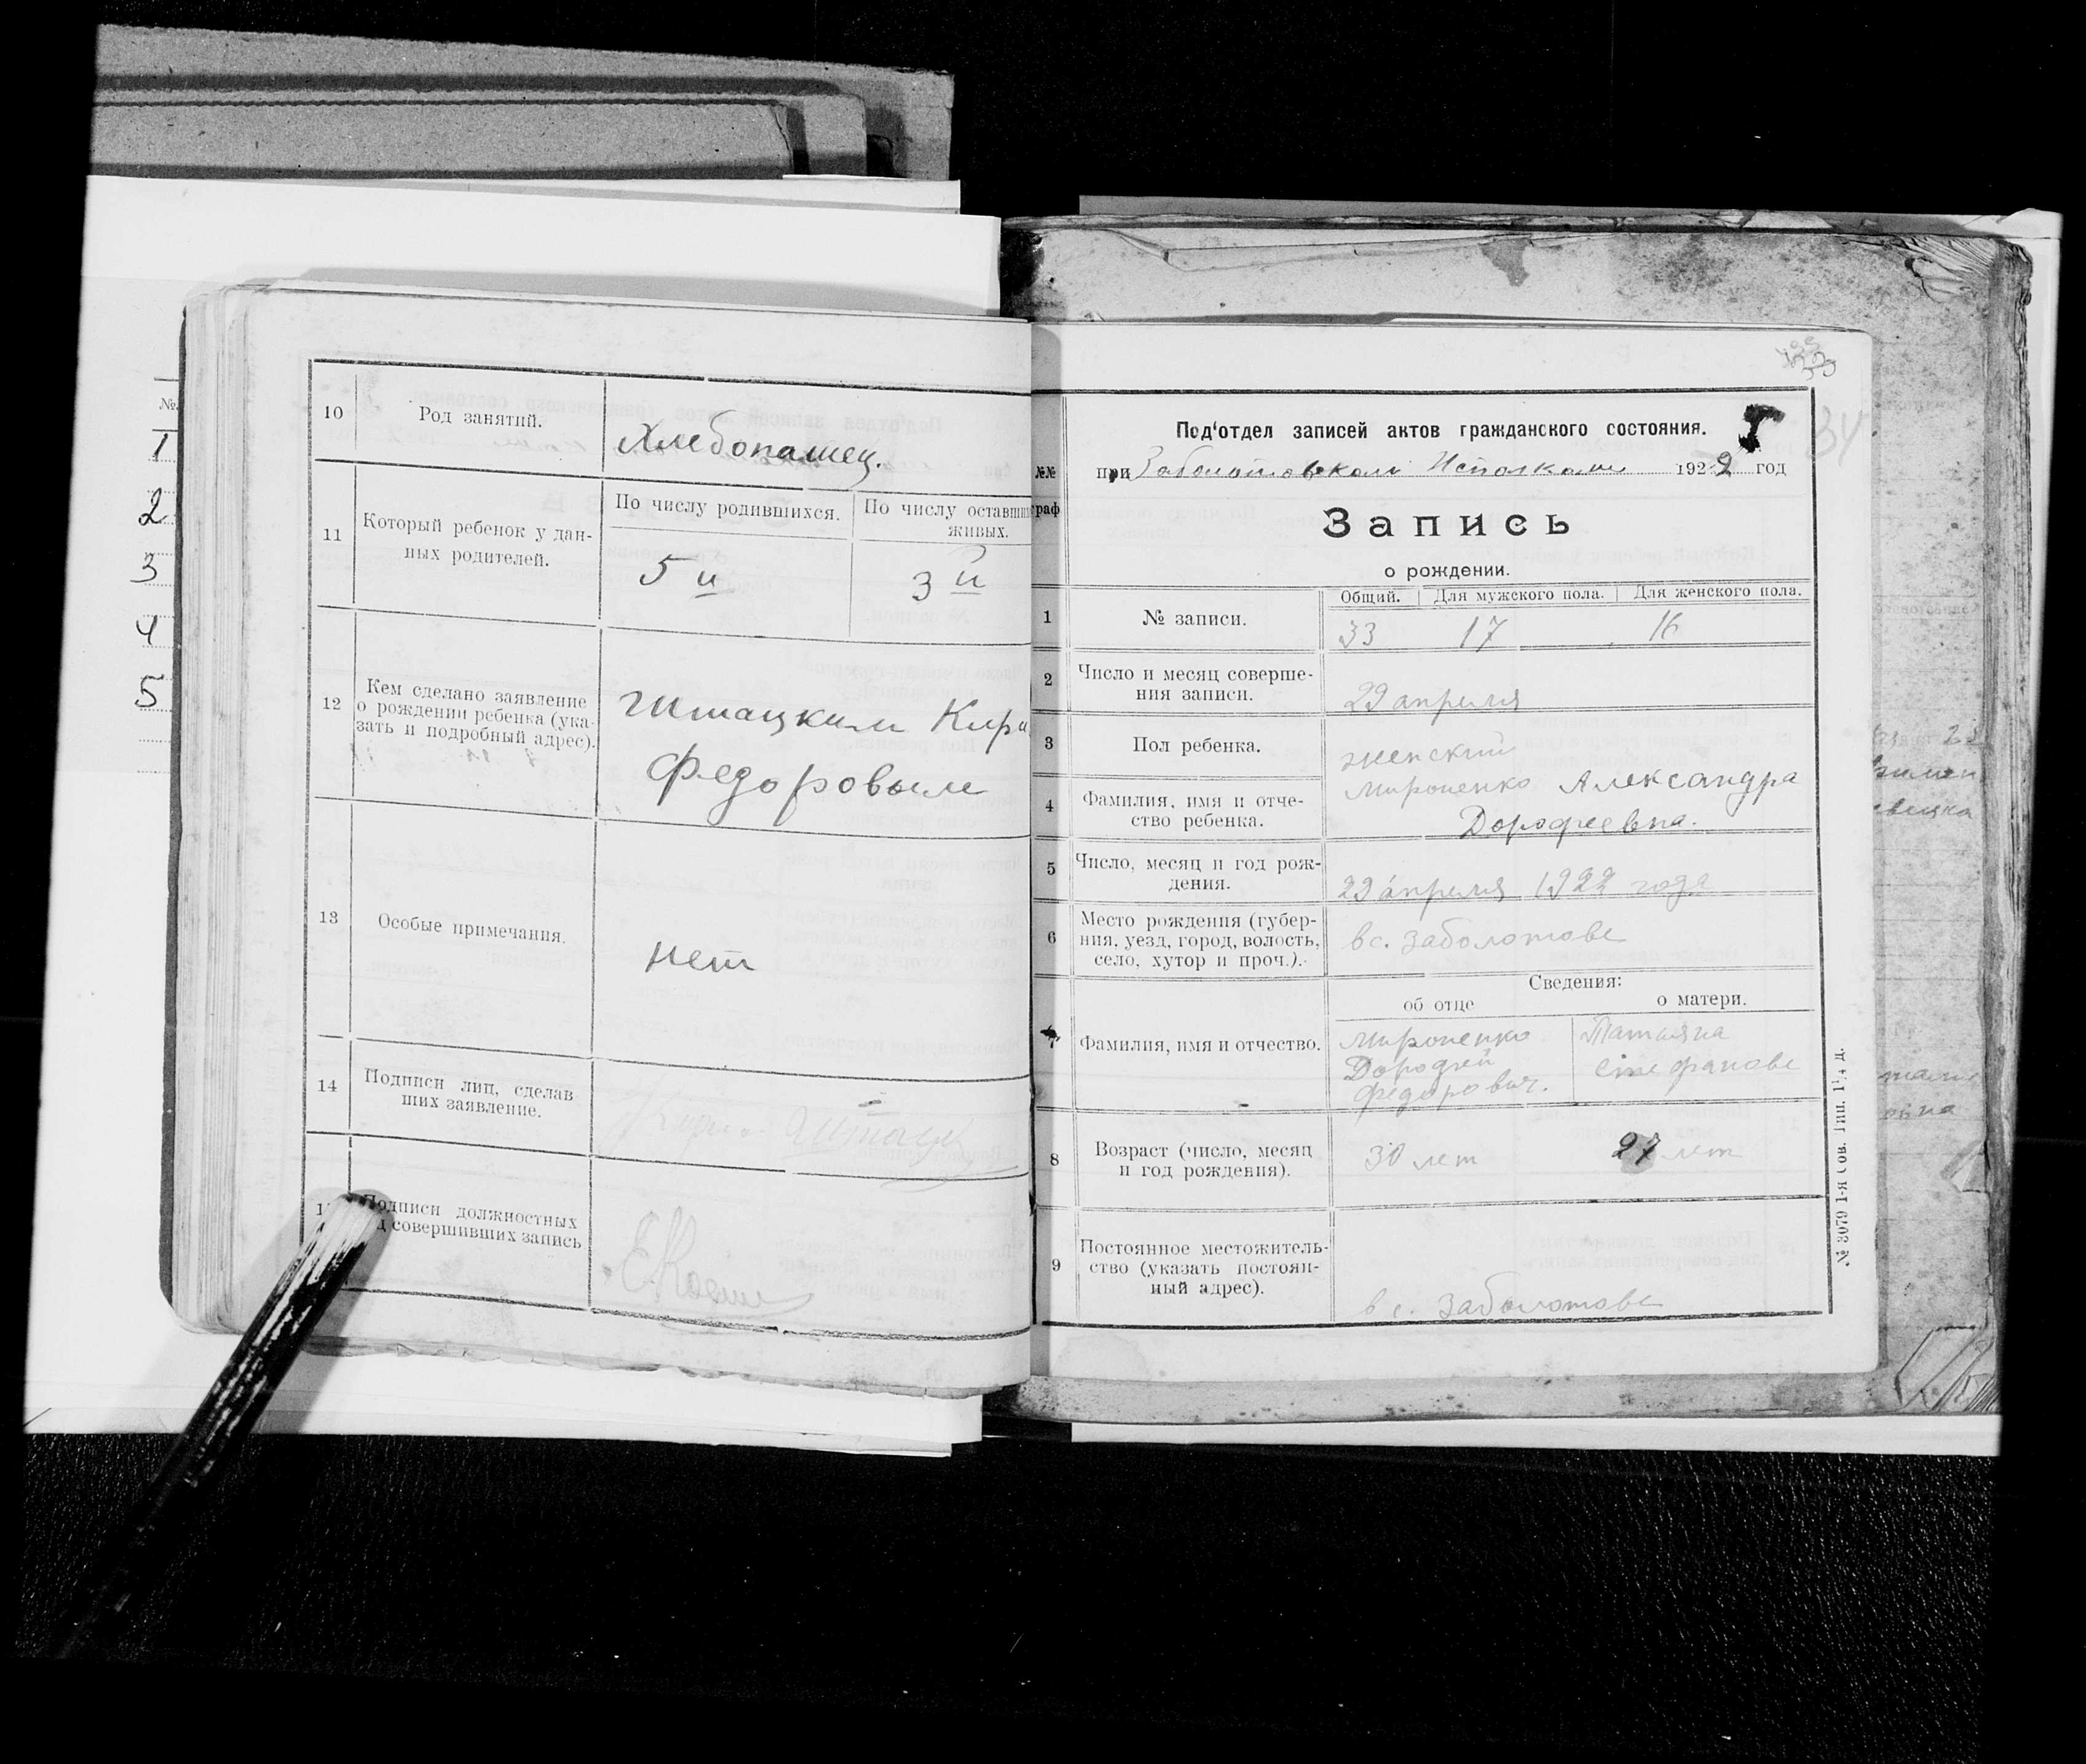 №
1
2
3
4
5
10
Род занятий.
Хлебопашец.
11
Который ребенок у дан-
ных родителей.
По числу родившихся.
По числу оставших
живых.
5 й
3 й
12
Кем сделано заявление
о рождении ребенка (ука-
зать и подробный адрес).
Кири
Федоровым
13
Особые примечания.
нет
14
Подписи лиц, сделав
ших заявление.
Подписи должностных
совершивших запись
34
№№
граф
Под'отдел записей актов гражданского состояния.
при Заболотовском Исполкоме 1922 год
Запись
о рождении.
Общий. Для мужского пола. Для женского пола.
1
№ записи.
33 17 16
2
Число и месяц соверше-
ния записи.
29 апреля
3
Пол ребенка.
женский
4
Фамилия, имя и отче-
ство ребенка.
Мироненко Александра
Дорофеевна.
5
Число, месяц и год рож-
дения.
29 апреля 1922 года
6
Место рождения (губер-
ния, уезд, город, волость,
село, хутор и проч.).
в с. Заболотове
Сведения:
об отце
о матери.
7
Фамилия, имя и отчество.
Мироненко
Дорофей
Федорович.
Татьяна
Стефанове
8
Возраст (число, месяц
и год рождения).
30 лет
27 лет
9
Постоянное местожитель-
ство (указать постоян-
ный адрес).
в с. Заболотове
№ 3079 1-я Сов. Тип.